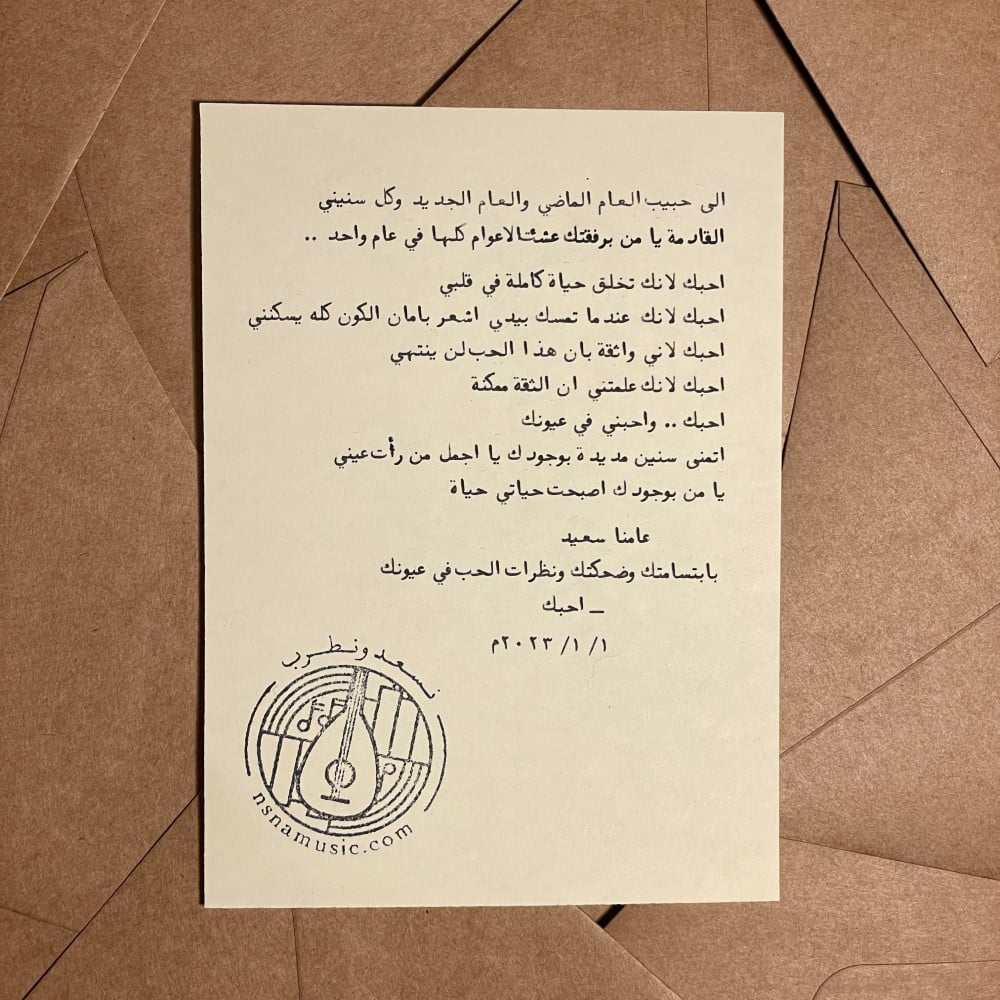 الى حبيب العام الماضي والعام الجديد وكل سنيني
القادمة يا من برفقتك عشت الاعوام كلها في عام واحد ..
احبك لانك تخلق حياة كاملة في قلبي
احبك لانك عندما تمسك بيدي اشعر بامان الكون كله يسكنني
احبك لاني واثقة بان هذا الحب لن ينتهي
احبك لانك علمتني ان الثقة ممكنة
احبك .. واحبني في عيونك
اتمنى سنين مديدة بوجودك يا اجمل من رأت عيني
يا من بوجودك اصبحت حياتي حياة
عامنا سعيد
بابتسامتك وضحكتك ونظرات الحب في عيونك
ــ احبك
١/ ١/ ٢٠٢٣م
نسعد ونطرب
nsnamusic.com